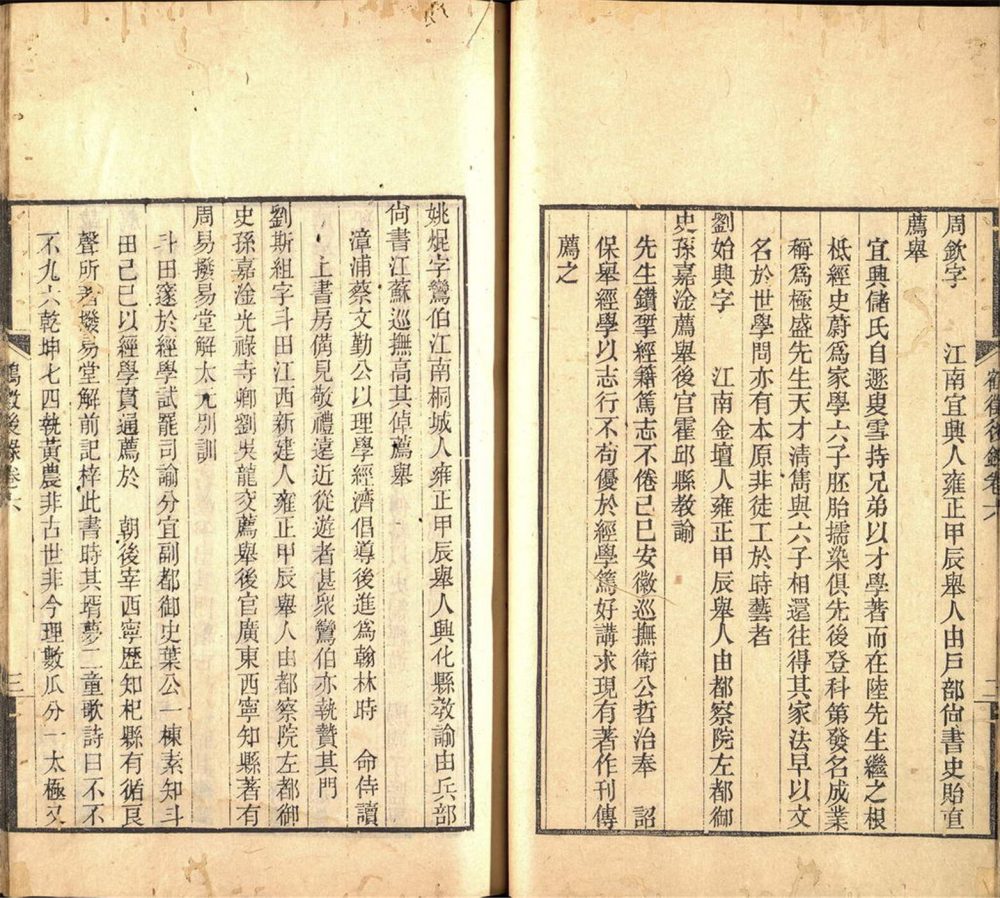 周欽字 江南宜興人雍正甲辰舉人由戶部尙書史貽直
薦舉
宜興儲氏自遯叟雪持兄弟以才學著而在陸先生繼之根
柢經史蔚爲家學六子胚胎擩染俱先後登科第發名成業
稱爲極盛先生天才淸雋與六子相還往得其家法早以文
名於世學問亦有本原非徒工於時藝者
劉始興字 江南金壇人雍正甲辰舉人由都察院左都御
史孫嘉淦薦舉後官霍邱縣敎諭
先生鑽揅經籍篤志不倦己巳安徽巡撫衛公哲治奉 詔
保舉經學以志行不茍優於經學篤好講求現有著作刊傳
薦之
鶴徵後錄卷六 二
姚焜字鸞伯江南桐城人雍正甲辰舉人興化縣敎諭由兵部
尙書江蘇巡撫高其倬薦舉
漳浦蔡文勤公以理學經濟倡導後進爲翰林時 命侍讀
上書房偁見敬禮遠近從遊者甚衆鸞伯亦執贄其門
劉斯組字斗田江西新建人雍正甲辰舉人由都察院左都御
史孫嘉淦光祿寺卿劉吳龍交薦舉後官廣東西寧知縣著有
周易撥易堂解太元別訓
斗田邃於經學試罷司諭分宜副都御史葉公一棟素知斗
田己巳以經學貫通薦於 朝後宰西寧歷知杞縣有循良
聲所著撥易堂解前記梓此書時其壻夢二童歌詩曰不不
不九六乾坤七四執黃農非古世非今理數瓜分一太極又
鶴徵後錄卷六 三